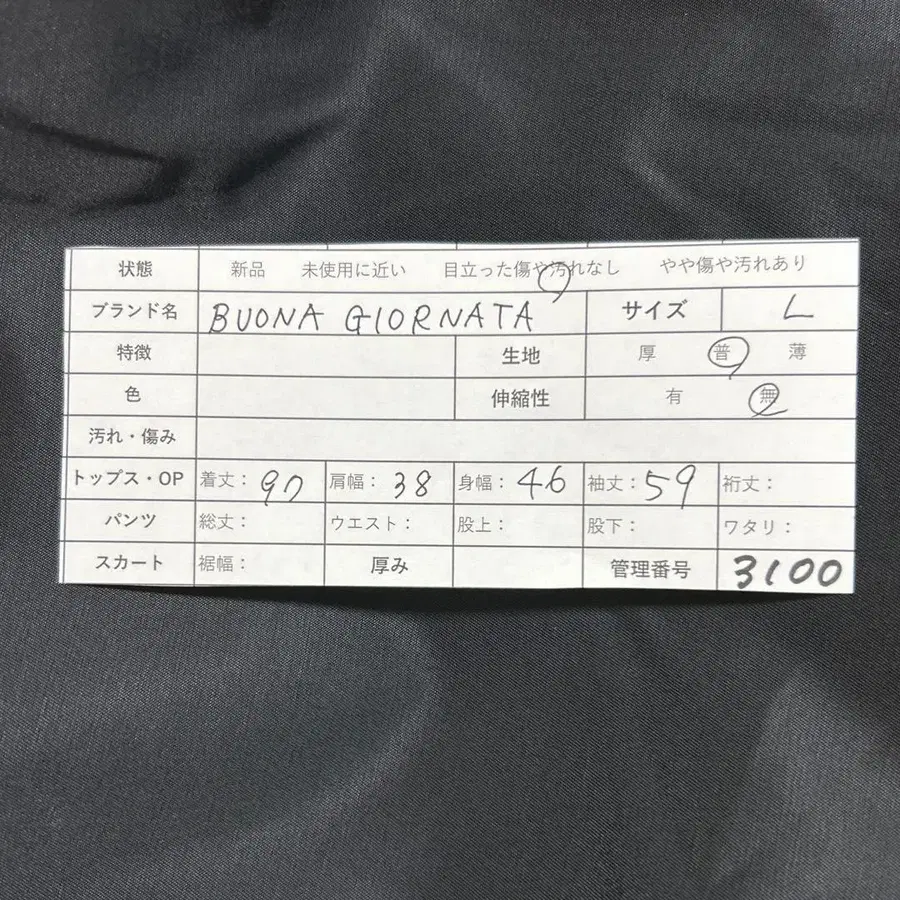 状態 新品 未使用に近い 目立った傷や汚れなし やや傷や汚れあり
ブランド名 BUONA GIORNATA サイズ L
特徴 生地 厚 普 薄
色 伸縮性 有 無
汚れ・傷み
トップス・OP 着丈: 90 肩幅: 38 身幅: 46 袖丈: 59 裄丈:
パンツ 総丈: ウエスト: 股上: 股下: ワタリ:
スカート 裾幅: 厚み 管理番号 3100